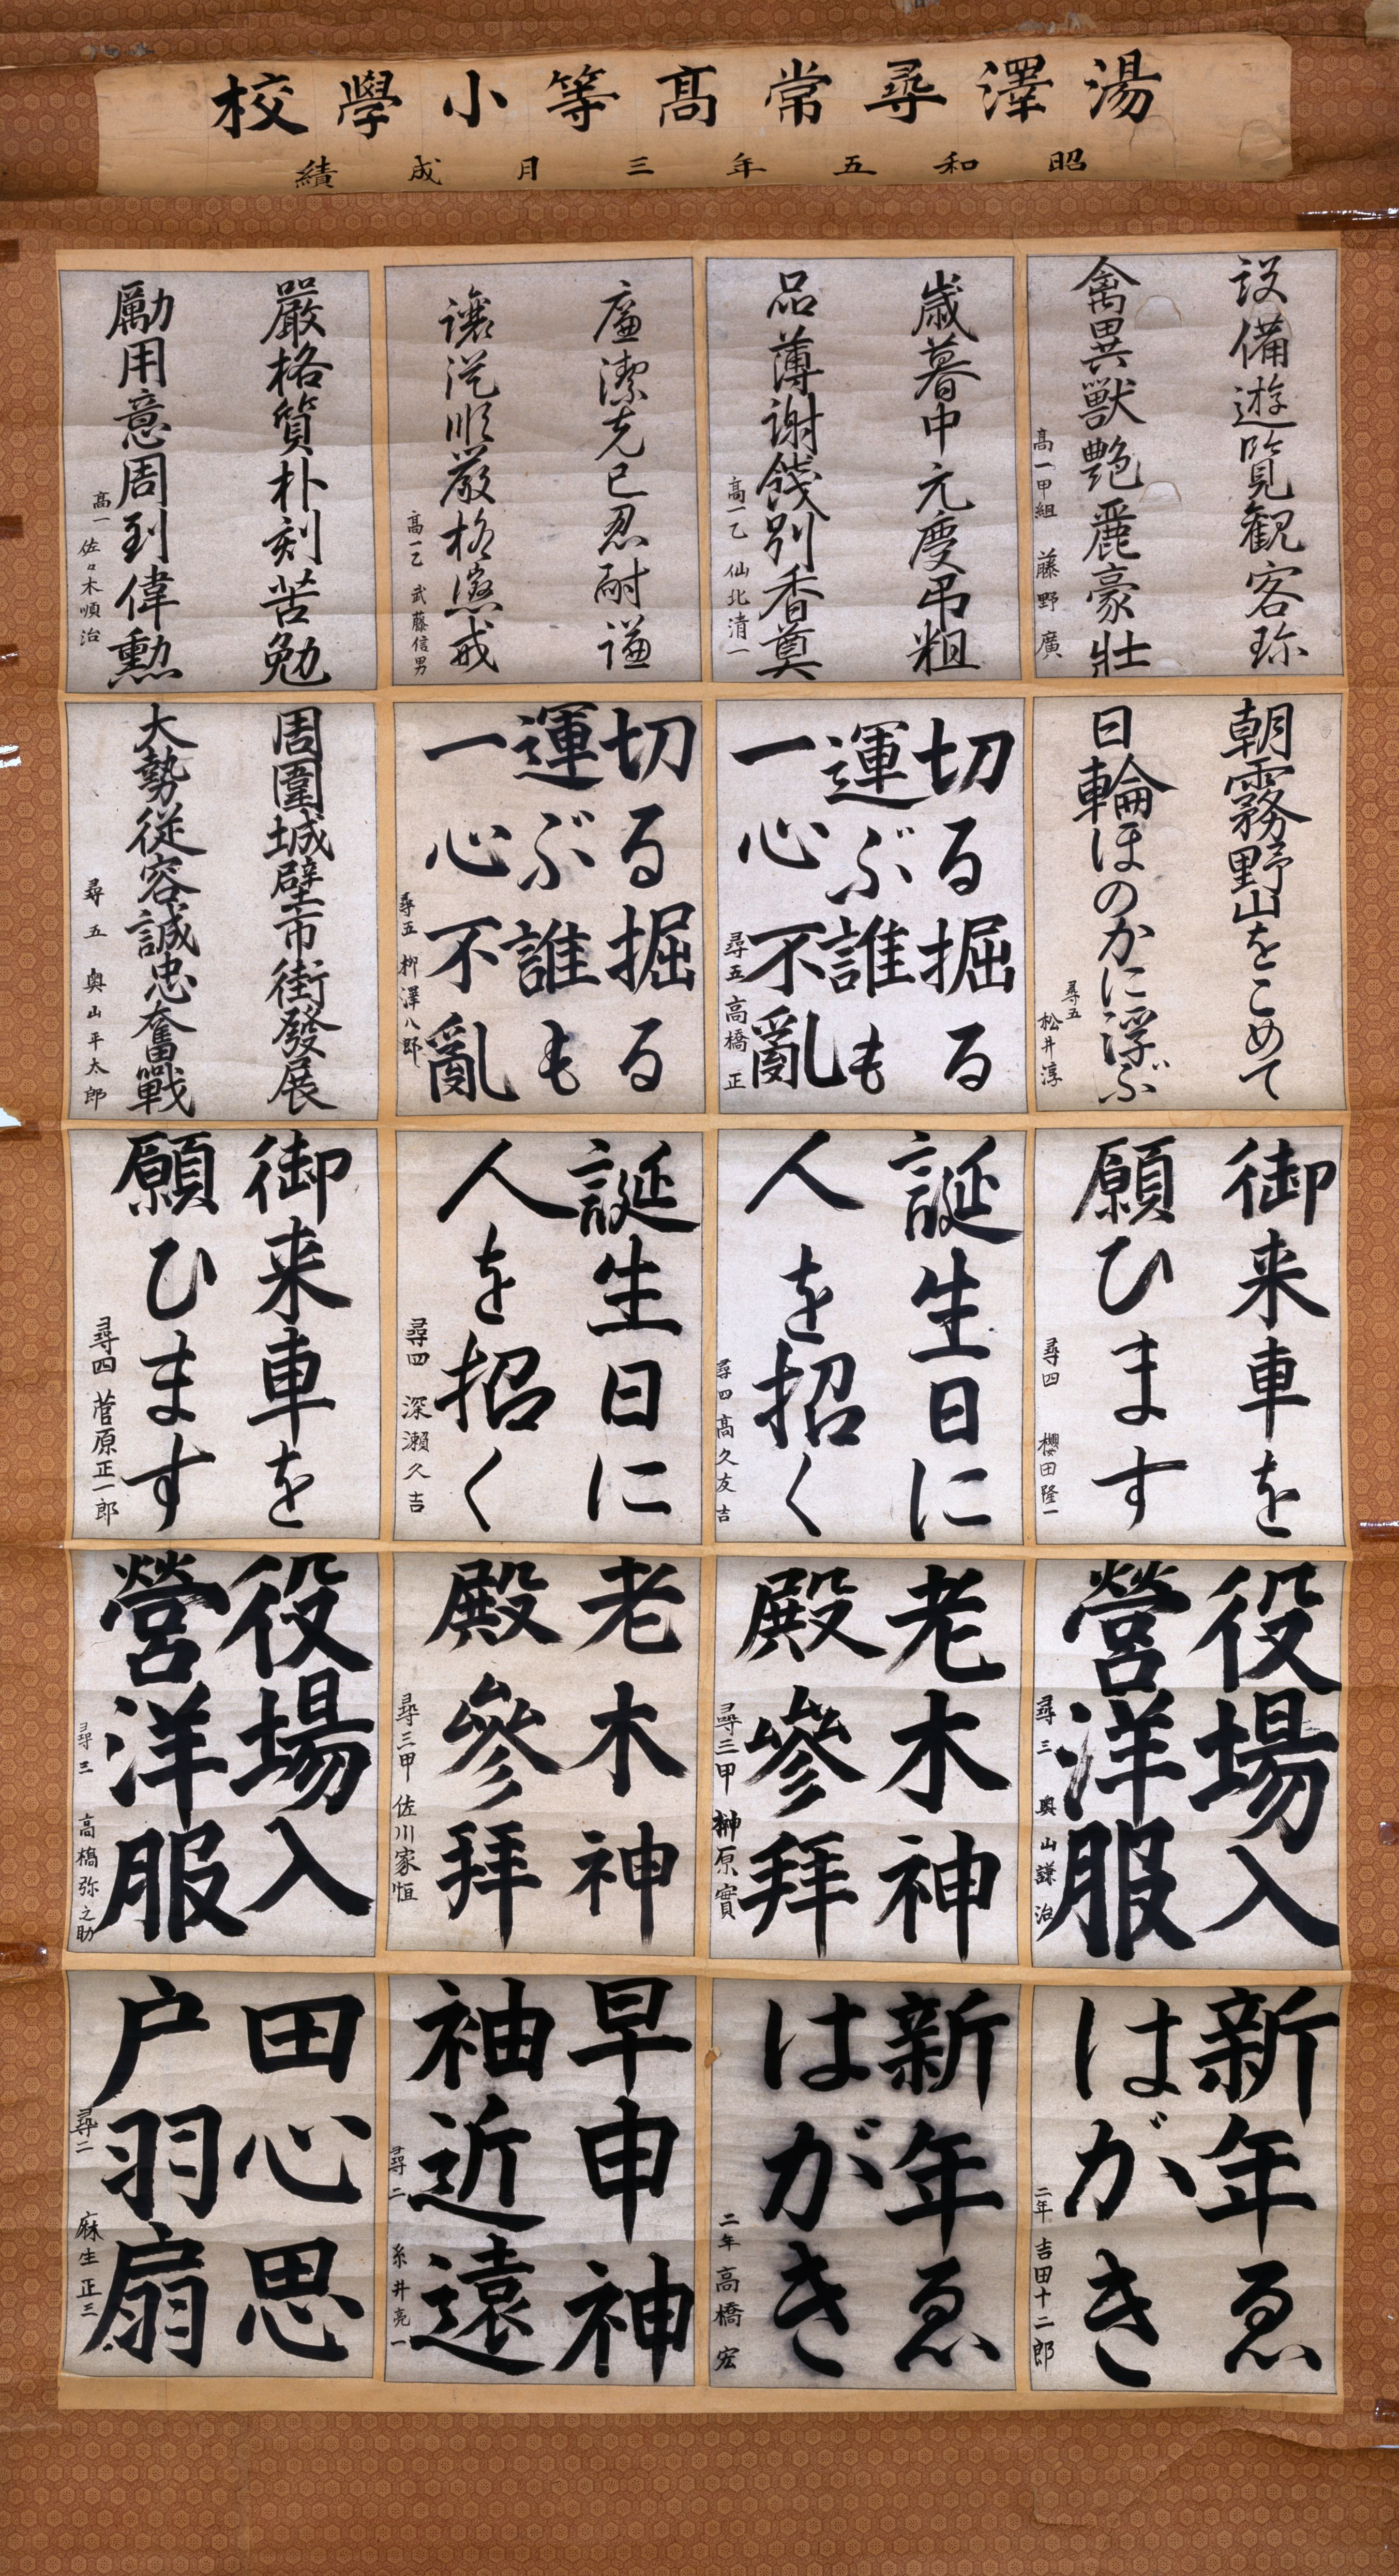 湯澤尋常高等小學校
昭和五年三月成績
設備遊覧観客珍
禽異獣艶麗豪壮
高一甲組 藤野廣
歳暮中元慶弔粗
品薄謝餞別香奠
高一乙 仙北清一
廉潔克己忍耐謙
譲従順厳格懲戒
高一乙 武藤信男
嚴格質朴刻苦勉
勵用意周到偉勲
高一 佐々木順治
朝霧野山をこめて
日輪ほのかに浮ぶ
尋五 松井淳
切る掘る
運ぶ誰も
一心不亂
尋五 高橋正
切る掘る
運ぶ誰も
一心不亂
尋五 柳澤八郎
周圍城壁市街發展
大勢従容誠忠奮戰
尋五 奥山平太郎
御来車を
願ひます
尋四 櫻田隆一
誕生日に
人を招く
尋四 高久友吉
誕生日に
人を招く
尋四 深瀬久吉
御来車を
願ひます
尋四 菅原正一郎
役場入
營洋服
尋三 奥山謙治
老木神
殿參拜
尋三甲 榊原實
老木神
殿參拜
尋三甲 佐川家恒
役場入
營洋服
尋三 高橋弥之助
新年ゑ
はがき
二年 吉田十二郎
新年ゑ
はがき
二年 高橋宏
早申神
袖近遠
尋二 糸井亮一
田心思
戸羽扇
尋二 麻生正三